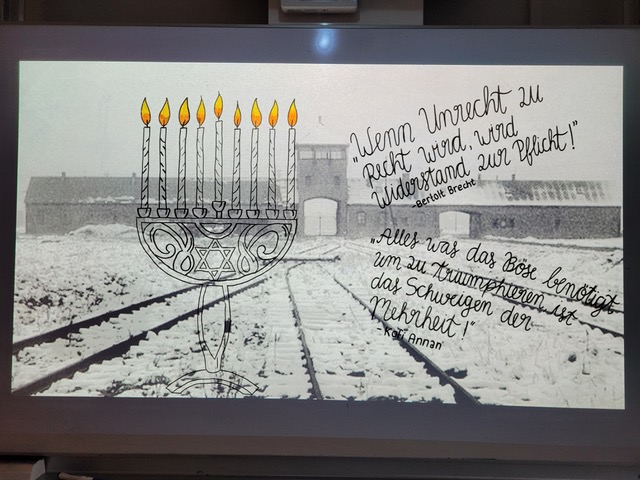 „Wenn Unrecht zu
Recht wird, wird
Widerstand zur Pflicht!"
-Bertolt Brecht
„Alles was das Böse benötigt
um zu triumphieren ist
das Schweigen der
Mehrheit!"
- Kofi Annan